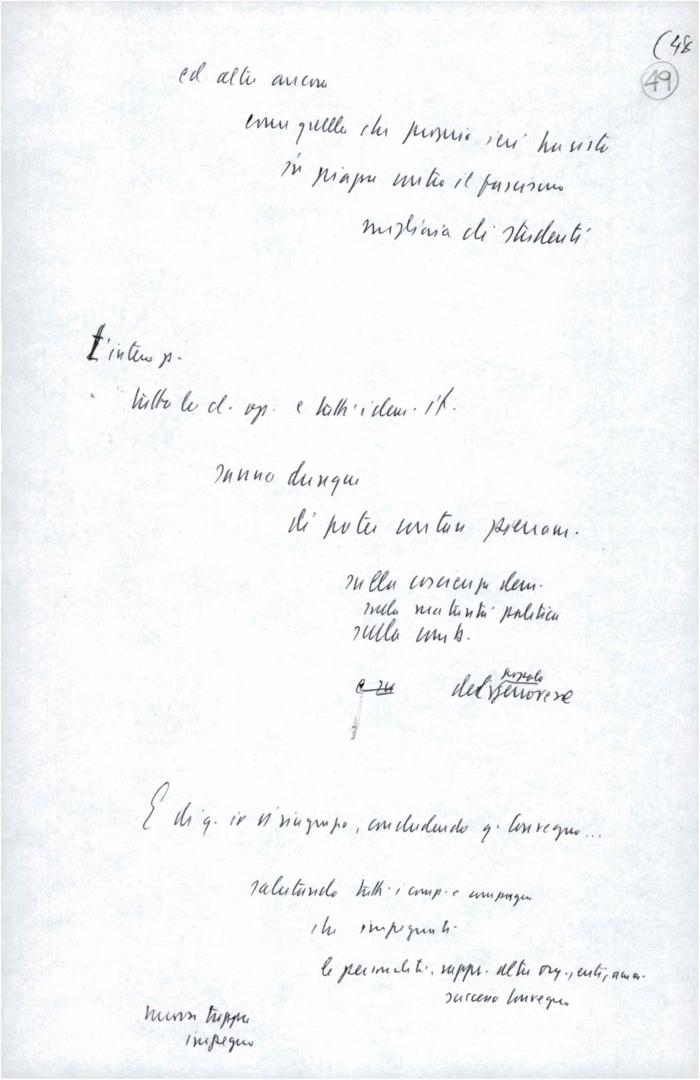 (48
49
ed altre ancora
come quella che proprio ieri ha visto
in piazza contro il fascismo
migliaia di studenti
L'intero p.
tutta la cl. op. e tutti i dem. it.
sanno dunque
di poter contare pienam.
sulla coscienza dem.
sulla maturità politica
sulla comb.
e su del popolo genovese
E di q. io vi ringrazio, concludendo q. Convegno...
salutando tutti i comp. e compagne
che impegnati
le personalità. rappr. altre org., enti,
successo Convegno
nuova tappa
impegno